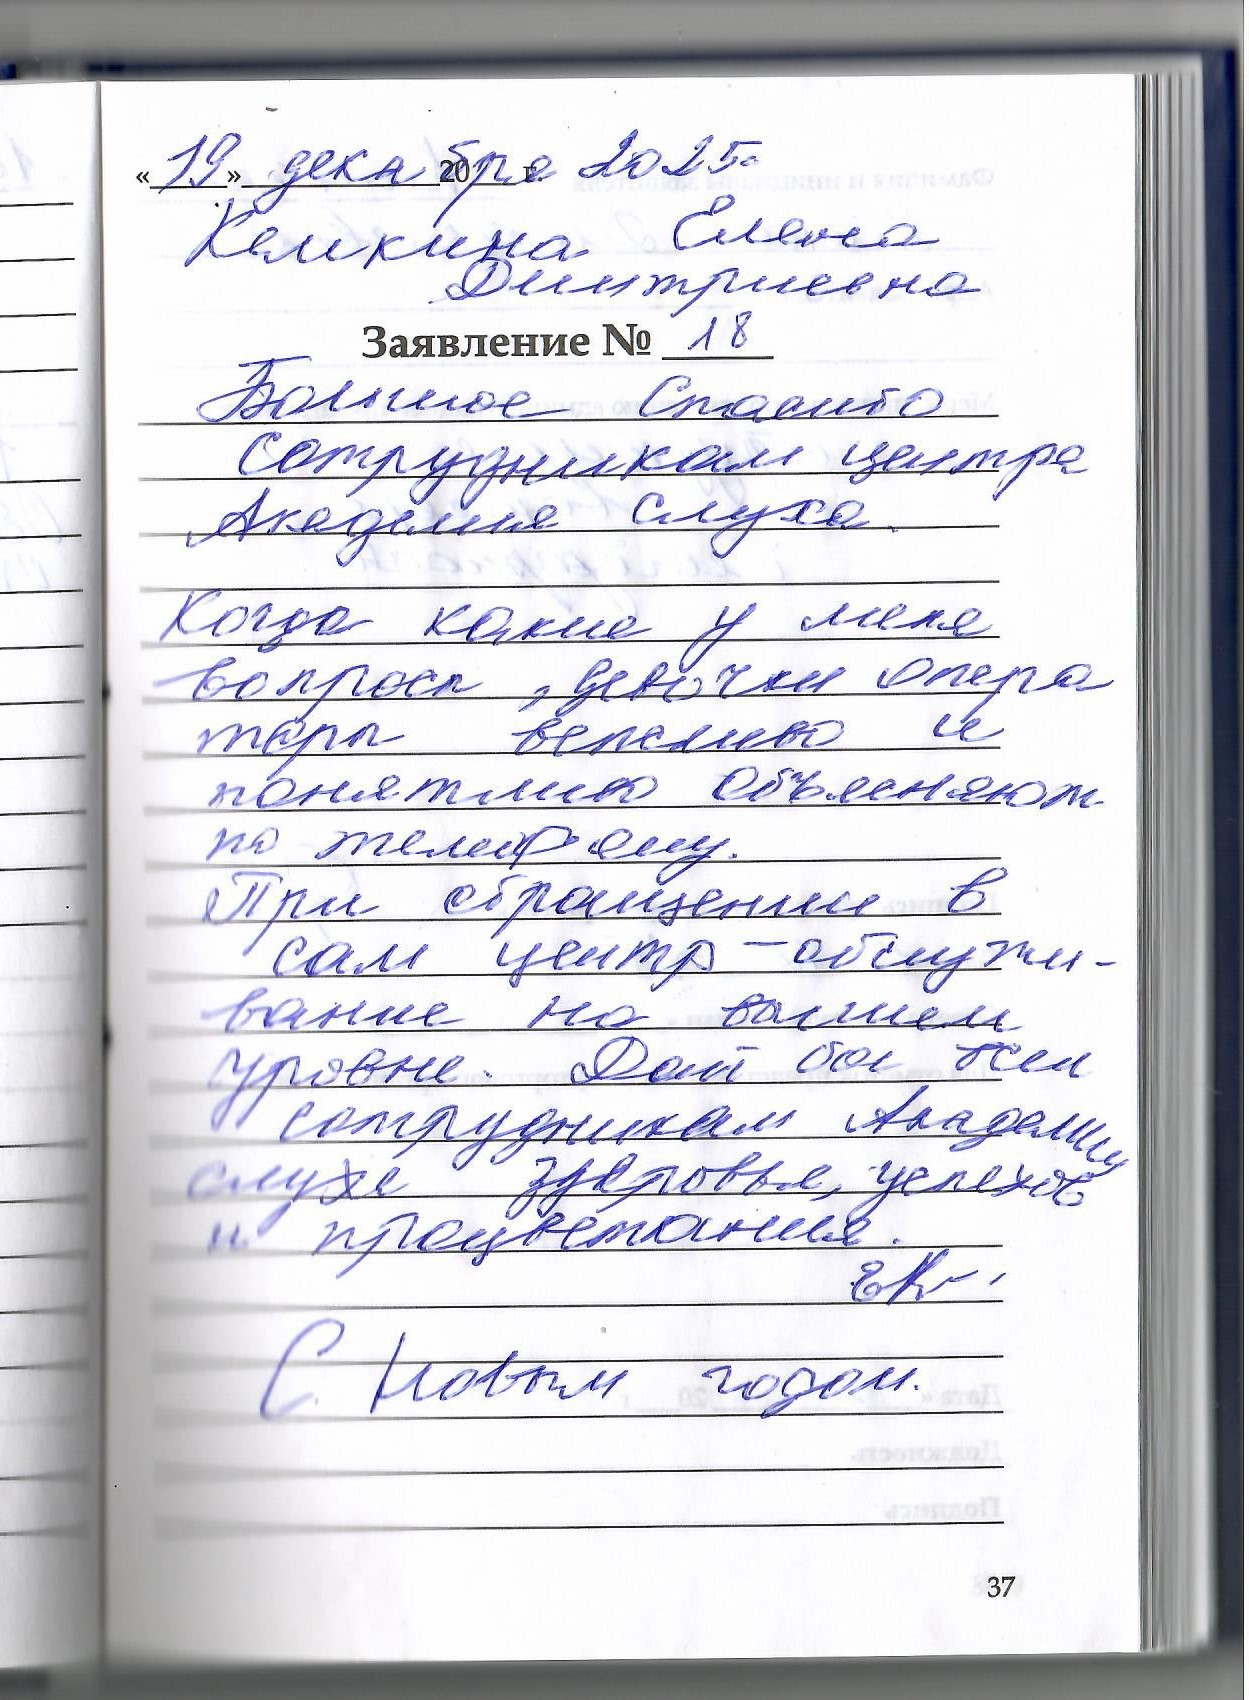 «19» декабря 2025г.
Кемкина Елена
Дмитриевна
Заявление № 18
Большое Спасибо
сотрудникам центра
Академия Слуха.
Когда какие у меня
вопросы, девочки опера
торы вежливо и
понятливо объясняют
по телефону.
При обращении в
сам центр - обслужи-
вание на высшем
уровне. Дай бог всем
сотрудникам Академии
слуха здоровья, успехов
и процветания.
С Новым годом.
37